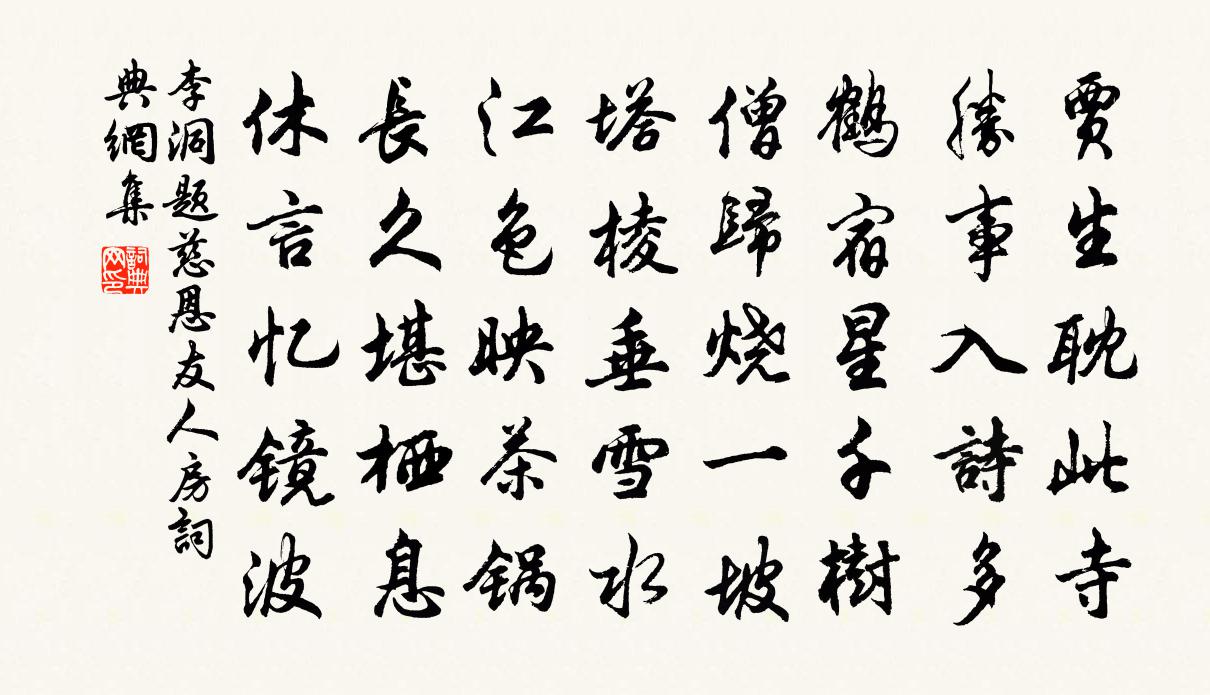 賈生耽此寺
勝事入詩多
鶴宿星千樹
僧歸烧一坡
塔棱垂雪水
江色映茶锅
長久堪栖息
休言忆镜波
李洞題慈恩友人房詞
典網集
詞典
网印